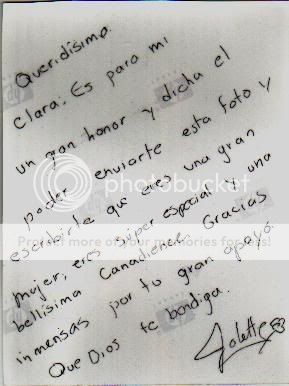 Queridísima
Clara: Es para mi
un gran honor y dicha el
poder enviarte esta foto y
escribirte que eres una gran
mujer, eres súper especial y una
bellísima Canadiense. Gracias
inmensas por tu gran apoyo.
Que Dios te bendiga.
photobucket